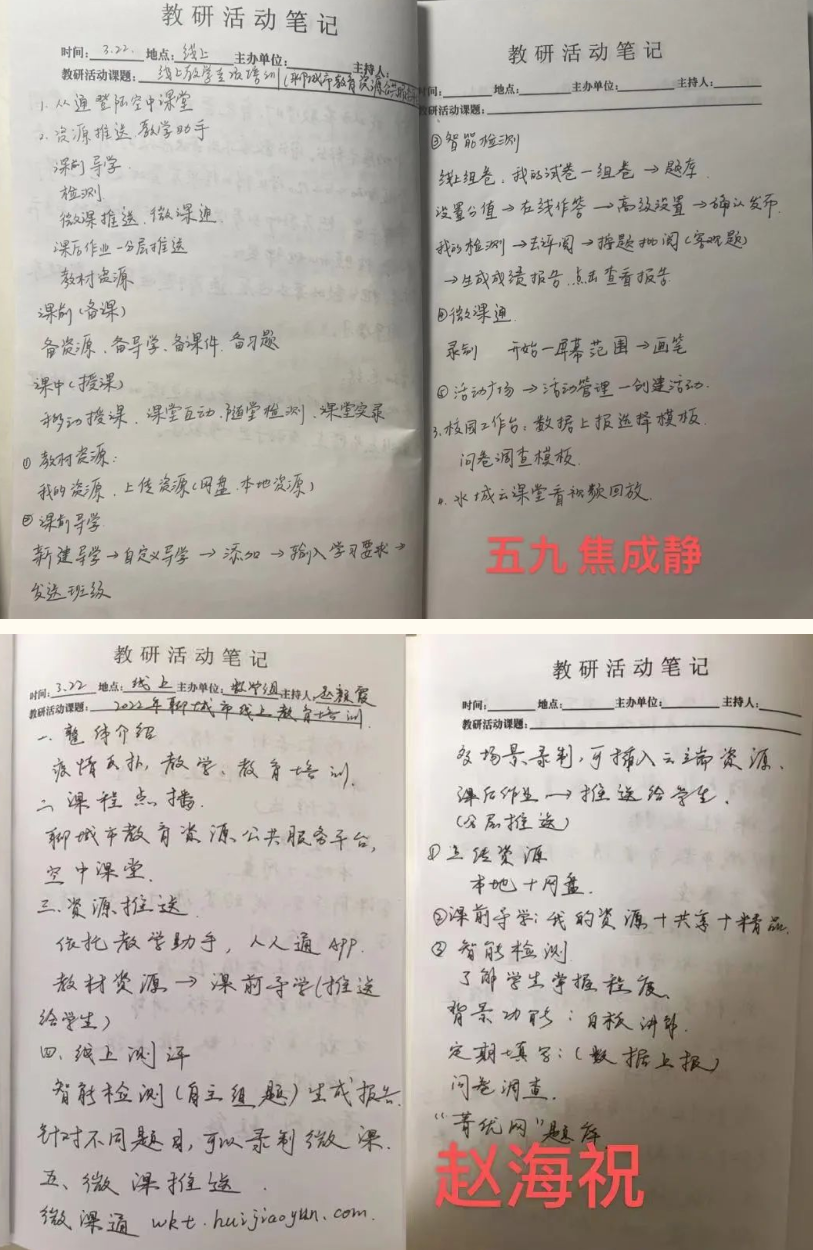 教研活动笔记
时间:3.22. 地点:线上 主办单位: 主持人:
教研活动课题: 线上教学应用培训(聊城市教育资源公共服务平台
1.人人通登陆空中课堂
2.资源推送 教学助手
课前导学.
检测
微课推送 微课通
课后作业-分层推送
教材资源
课前(备课)
备资源、备导学、备课件、备习题
课中(授课)
移动授课、课堂互动、随堂检测、课堂实录
①教材资源:
我的资源、上传资源(网盘、本地资源)
②课前导学
新建导学→自定义导学→添加→输入学习要求→
发送班级
教研活动笔记
时间: 地点: 主办单位: 主持人:
教研活动课题:
③智能检测
线上组卷、我的试卷-组卷→题库.
设置分值→在线作答→高级设置→确认发布.
我的检测→去评阅→按题批阅(客观题)
→生成成绩报告.点击查看报告
④微课通.
录制 开始-屏幕范围→画笔
⑤活动广场→活动管理-创建活动.
3.校园工作台:数据上报选择模板.
问卷调查模板.
4.水城云课堂看视频回放.
五九 焦成静
教研活动笔记
时间:3.22 地点:线上 主办单位:数学组 主持人:赵颖霞
教研活动课题: 2022年聊城市线上教育培训.
一.整体介绍
疫情反扑,教学、教育培训.
二.课程点播.
聊城市教育资源公共服务平台,
空中课堂.
三.资源推送
依托教学助手,人人通APP.
教材资源→课前导学(推送
给学生)
四、线上测评
智能检测(自主组题)生成报告.
针对不同题目,可以录制微课.
五、微课推送.
微课通 wkt.huijiaoyun.com.
教研活动笔记
时间: 地点: 主办单位: 主持人:
教研活动课题:
多场景录制,可插入云端资源.
课后作业→推送给学生.
(分层推送)
①上传资源
本地+网盘.
②课前导学:我的资源+共享+精品.
③智能检测
了解学生掌握程度.
背景功能:白板讲解.
定期填写:(数据上报)
问卷调查.
“菁优网”题库
赵海祝